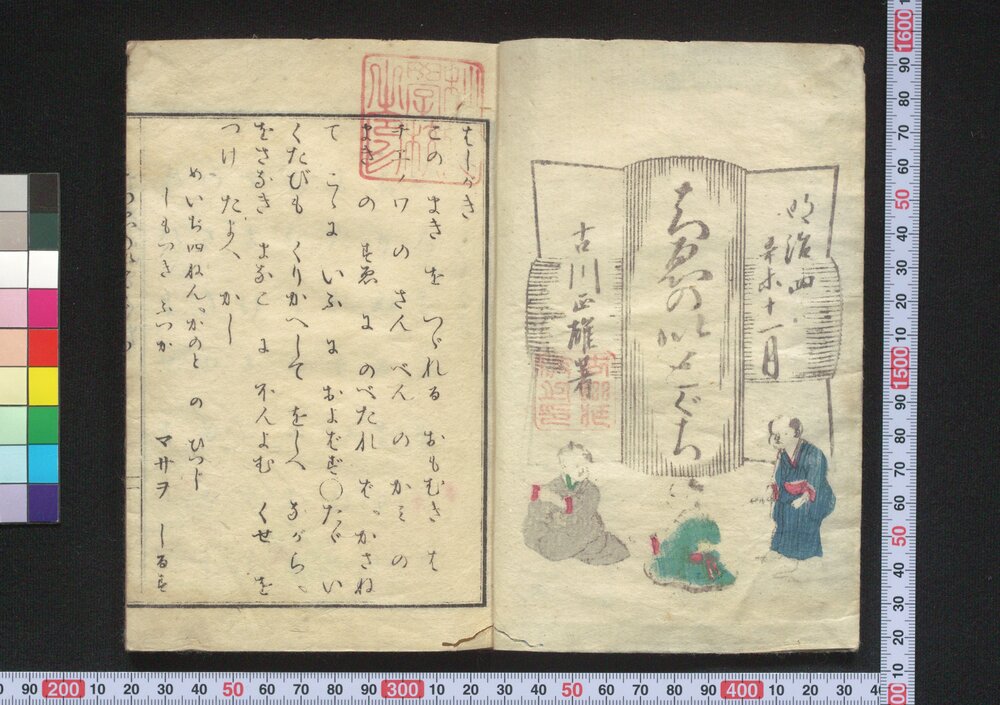 明治四
辛未十一月
ちゑのいとぐち
古川正雄著
はしがき
このまきを つゞれる おもむき は
ヰナカ のさんべんのかみの
まき の すゑに のべたれ ば、かさね
て こゝに いふに およばず○たゞ い
くたびも くりかへして をしへ ながら、
をさなき まなこ に ふんよむ くせ を
つけ たまへ かし
めいぢ四ねん、かのと の ひつじ
しもつき ふつか
マサヲ しるす